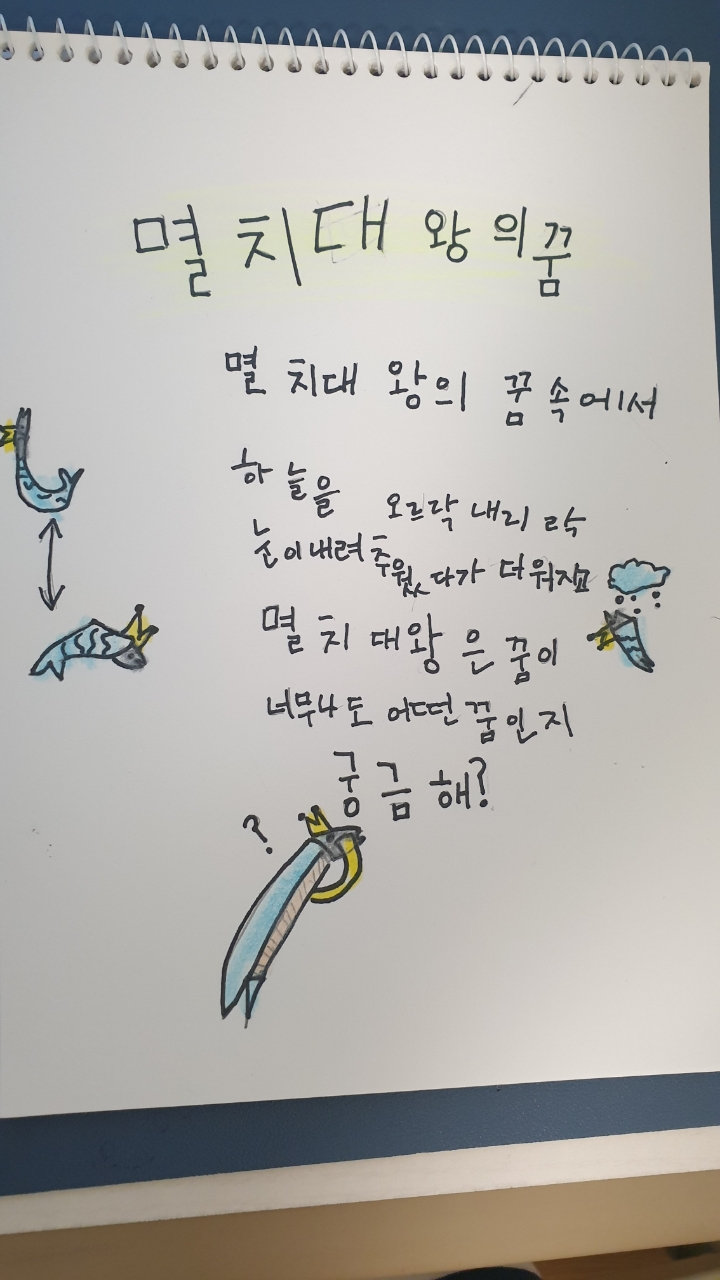 멸치대왕의꿈
멸치대왕의 꿈속에서
하늘을 오르락 내리락
눈이내려추웠다가 더워지고
멸치대왕은꿈이
너무나도 어떤꿈인지
궁금해?
?